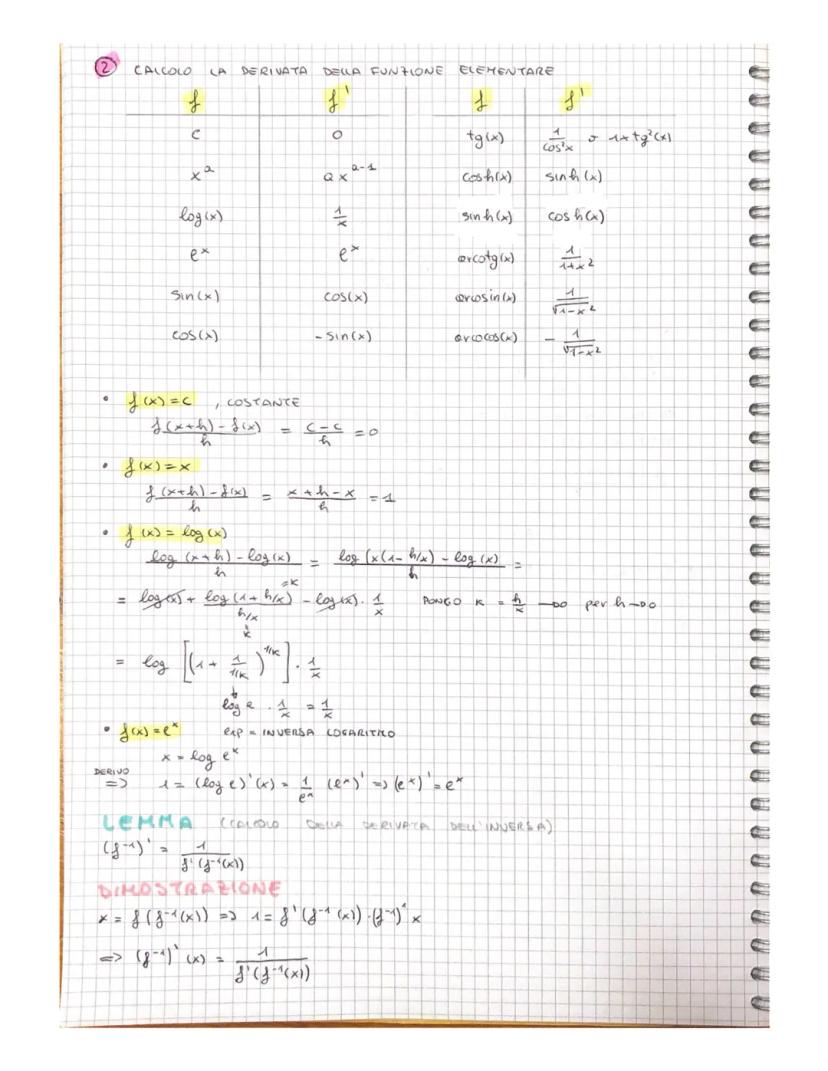 ② CALCOLO LA DERIVATA DELLA FUNZIONE ELEMENTARE
f f' f f'
c 0 tg(x) 1/cos²x o 1+tg²(x)
x^a ax^(a-1) cosh(x) sinh(x)
log(x) 1/x sinh(x) cosh(x)
e^x e^x arcotg(x) 1/(1+x²)
sin(x) cos(x) arcosin(x) 1/√(1-x²)
cos(x) -sin(x) arcocos(x) - 1/√(1-x²)
• f(x)=c , COSTANTE
(f(x+h)-f(x))/h = (c-c)/h = 0
• f(x)=x
(f(x+h)-f(x))/h = (x+h-x)/h = 1
• f(x) = log(x)
(log(x+h)-log(x))/h = (log(x(1-h/x)-log(x))/h =
= log(x) + log(1+h/x)/(h/x) - log(x) · 1/x PONGO K = h/x →0 per h→0
=K
k
= log [(1 + 1/(1/K))^(1/K)] · 1/x
log e · 1/x = 1/x
• f(x)=e^x exp = INVERSA LOGARITMO
x = log e^x
DERIVO
=> 1 = (log e)'(x) = 1/e^x (e^x)' => (e^x)' = e^x
LEMMA (CALCOLO DELLA DERIVATA DELL'INVERSA)
(f^-1)' = 1/(f'(f^-1(x)))
DIMOSTRAZIONE
x = f(f^-1(x)) => 1 = f'(f^-1(x)) · (f^-1)' x
=> (f^-1)'(x) = 1/(f'(f^-1(x)))